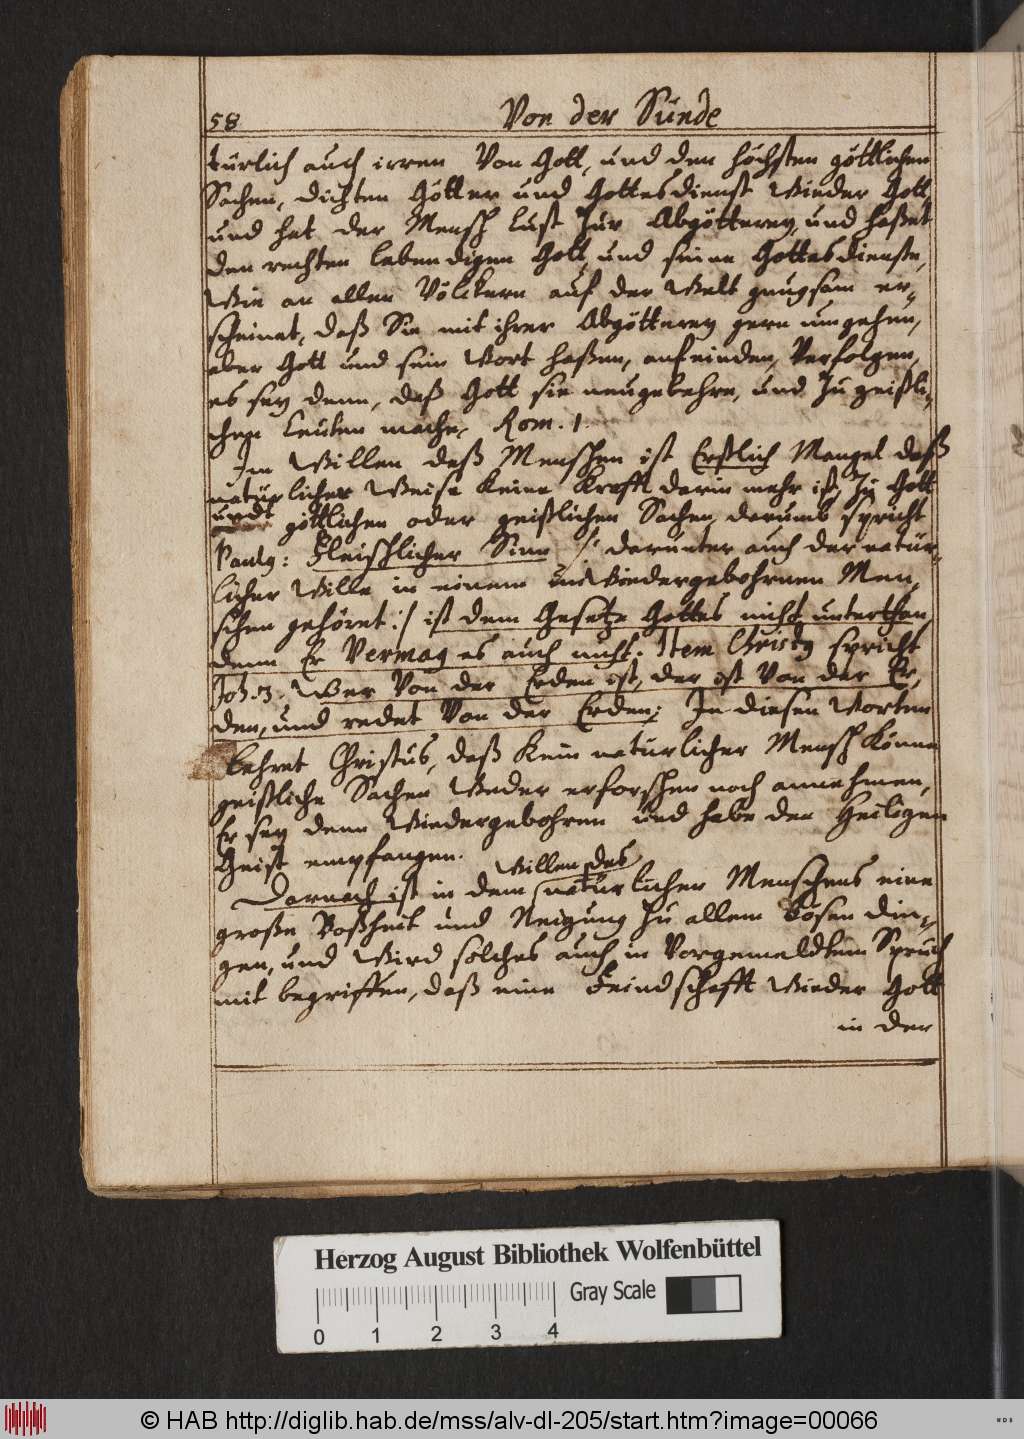 58 Von der Sünde
türlich auch irren Von Gott, und den höchsten göttlichen
Sachen, dichten Götter und Gottesdienst Wieder Gott,
und hat der Mensch lust zur Abgötterey, und haßet
den rechten lebendigen Gott, und seine Gottesdienste,
Wie an allen Völckern auf der Welt gnugsam er-
scheinet, daß Sie mit ihrer Abgötterey gern umgehen,
aber Gott und sein Wort haßen, anfeinden, Verfolgen,
es sey denn, daß Gott sie neugebehre, und zu geistli-
chen Leuten mache, Rom. 1.
Im Willen deß Menschen ist Erstlich Mangel daß
natürlicher Weise keine Krafft darin mehr ist, Zu Gott
undt göttlichen oder geistlichen Sachen, darumb spricht
Paulg: Fleischlicher Sinn /: darunter auch der natür-
licher Wille in einem unWiedergebohrnen Men-
schen gehöret :/ ist dem Gesetze Gottes nicht unterthan,
denn Er Vermag es auch nicht. Item Christg spricht
Joh. 3. Wer Von der Erden ist, der ist Von der Er-
den, und redet Von der Erden; In diesen Worten
lehret Christus, daß kein natürlicher Mensch könne
geistliche Sachen Weder erforschen noch annehmen,
Er sey denn Wiedergebohren und habe den Heiligen
Geist empfangen.
Willen des
Darnach ist in dem natürlicher Menschens eine
große Boßheit und Neigung zu allem bösen din-
gen, und Wird solches auch in Vorgemeldtem Spruch
mit begriffen, daß eine Feindschafft Wieder Gott
in der
Herzog August Bibliothek Wolfenbüttel
Gray Scale
0 1 2 3 4
© HAB http://diglib.hab.de/mss/alv-dl-205/start.htm?image=00066